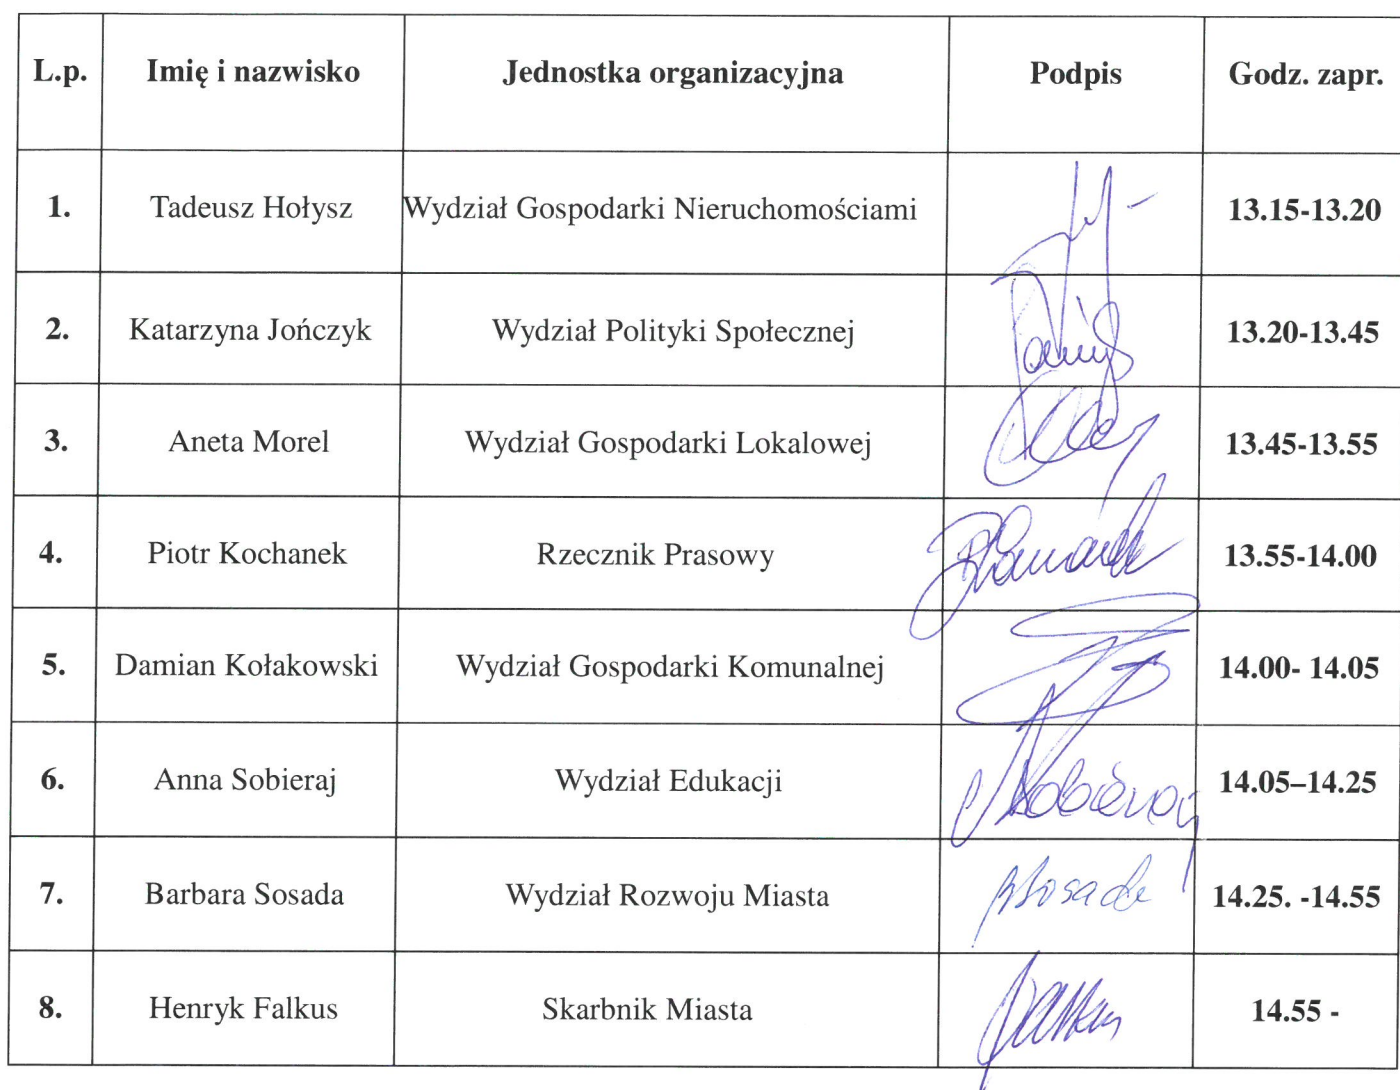 L.p. Imię i nazwisko Jednostka organizacyjna Podpis Godz. zapr.
1. Tadeusz Hołysz Wydział Gospodarki Nieruchomościami 13.15-13.20
2. Katarzyna Jończyk Wydział Polityki Społecznej 13.20-13.45
3. Aneta Morel Wydział Gospodarki Lokalowej 13.45-13.55
4. Piotr Kochanek Rzecznik Prasowy 13.55-14.00
5. Damian Kołakowski Wydział Gospodarki Komunalnej 14.00- 14.05
6. Anna Sobieraj Wydział Edukacji 14.05–14.25
7. Barbara Sosada Wydział Rozwoju Miasta 14.25. -14.55
8. Henryk Falkus Skarbnik Miasta 14.55 -